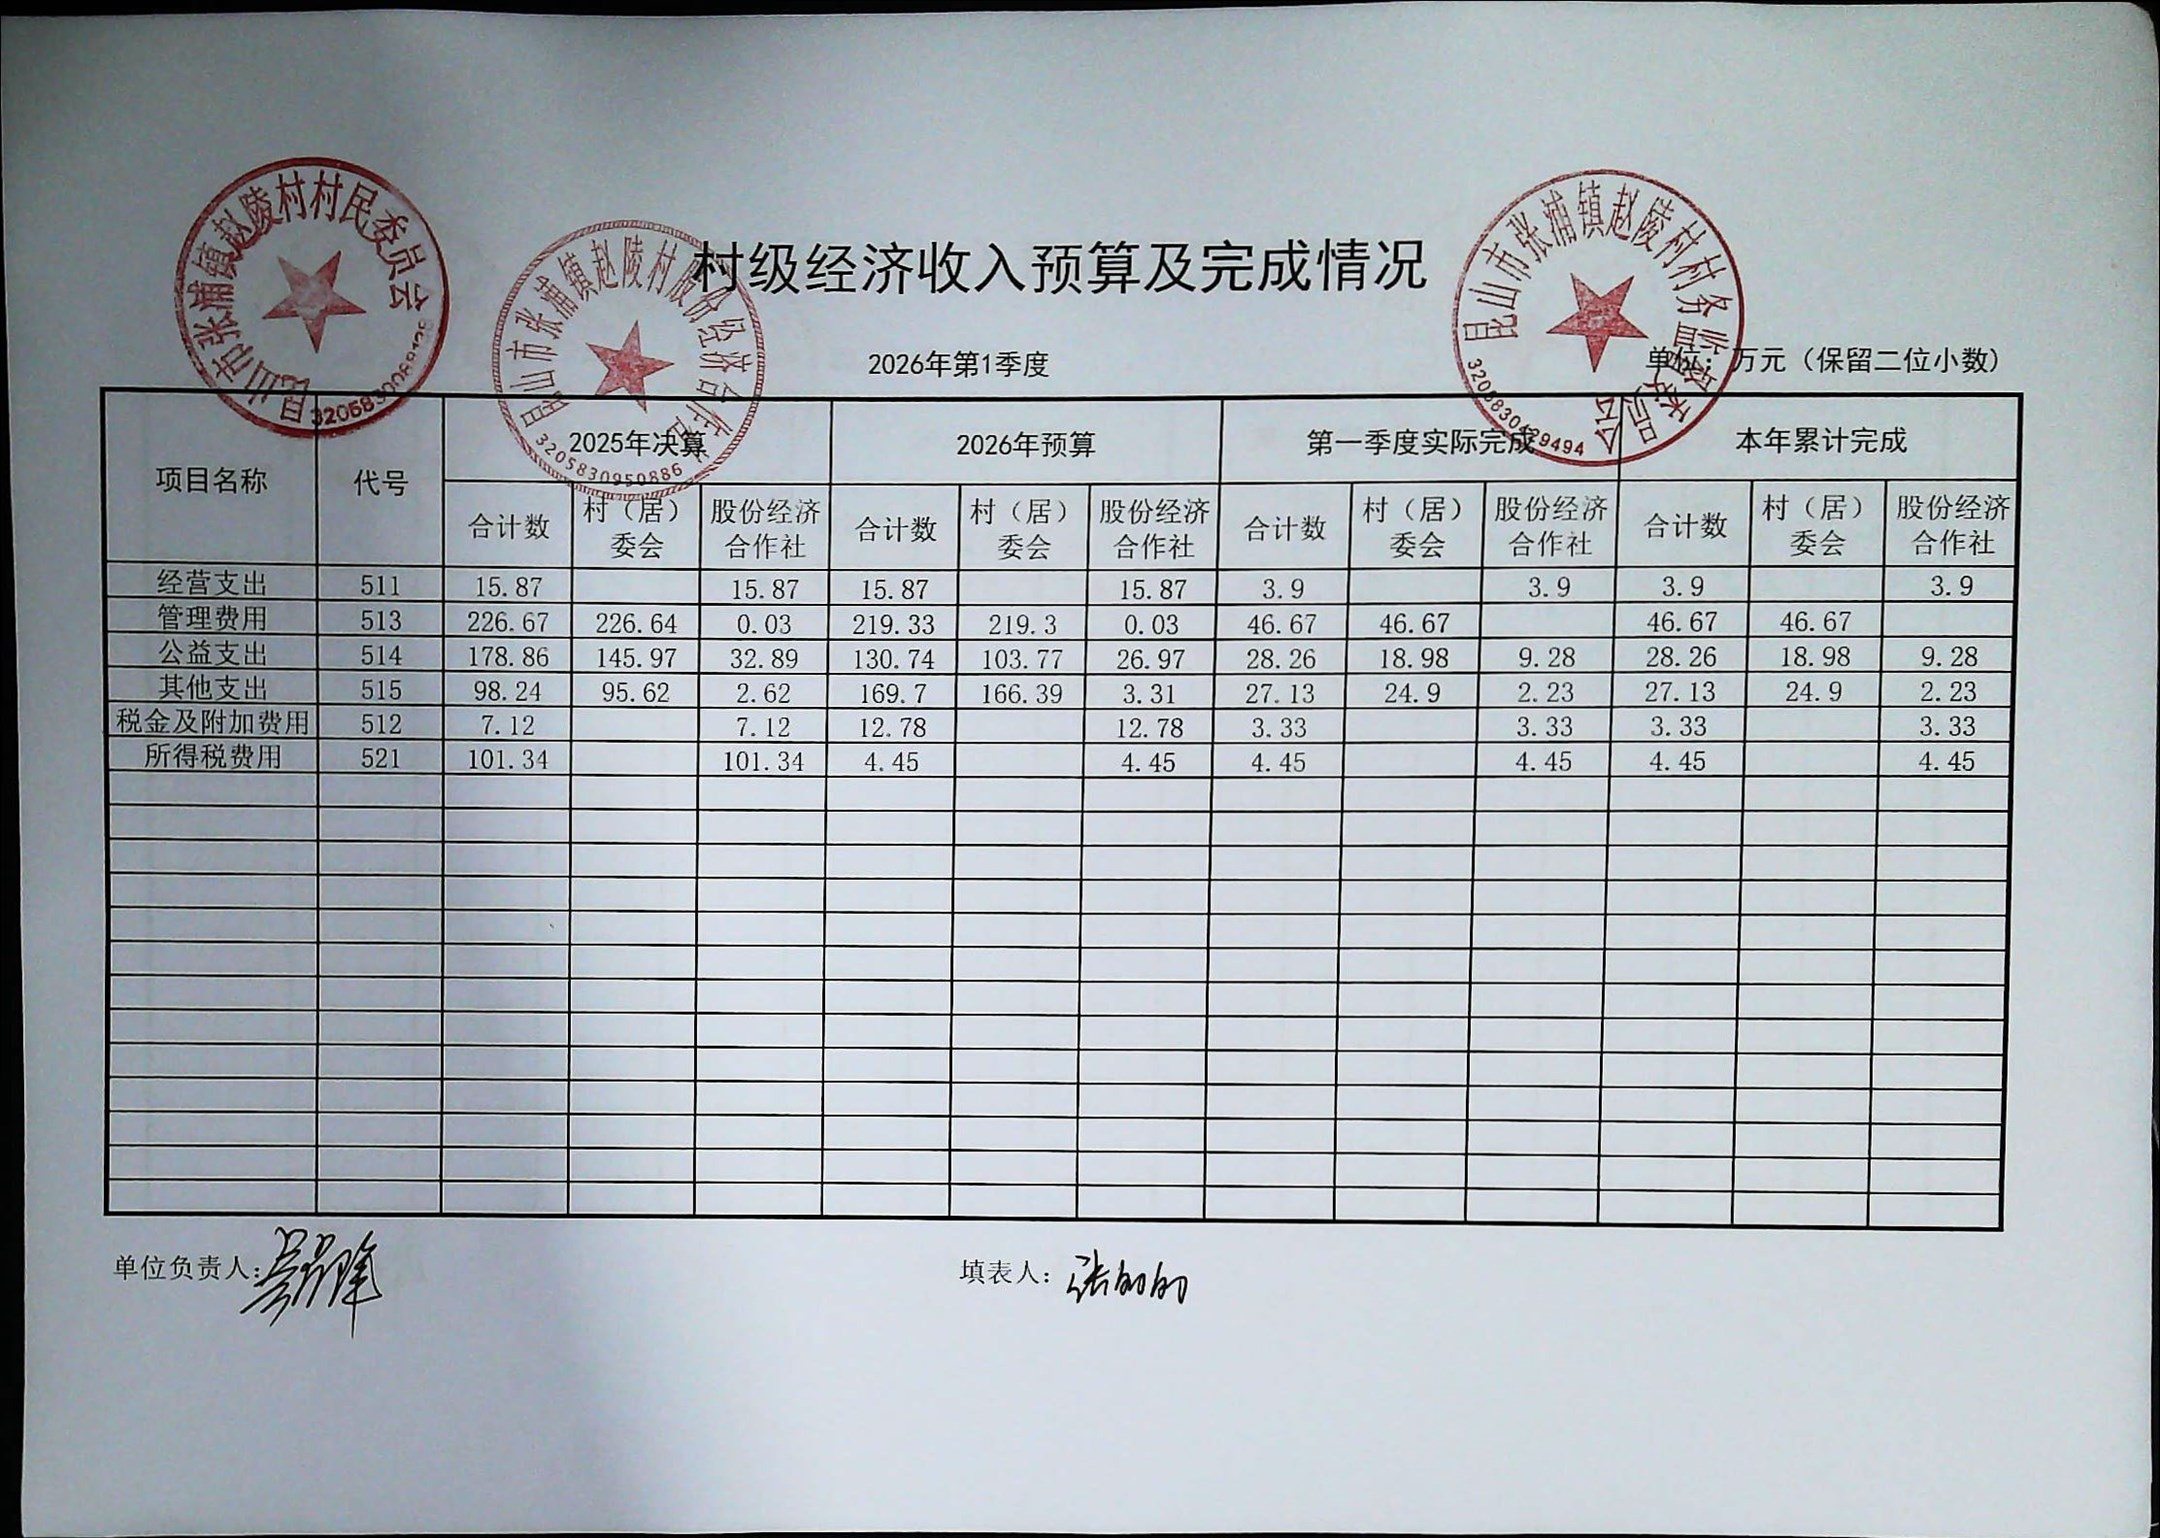 昆山市张浦镇赵陵村村民委员会
昆山市张浦镇赵陵村股份经济合作社
3205830950886
昆山市张浦镇赵陵村村务监督委员会
3205830429494
村级经济收入预算及完成情况
2026年第1季度
单位：万元（保留二位小数）
项目名称 代号 2025年决算 2026年预算 第一季度实际完成 本年累计完成
合计数 村（居）委会 股份经济合作社 合计数 村（居）委会 股份经济合作社 合计数 村（居）委会 股份经济合作社 合计数 村（居）委会 股份经济合作社
经营支出 511 15.87 15.87 15.87 15.87 3.9 3.9 3.9 3.9
管理费用 513 226.67 226.64 0.03 219.33 219.3 0.03 46.67 46.67 46.67 46.67
公益支出 514 178.86 145.97 32.89 130.74 103.77 26.97 28.26 18.98 9.28 28.26 18.98 9.28
其他支出 515 98.24 95.62 2.62 169.7 166.39 3.31 27.13 24.9 2.23 27.13 24.9 2.23
税金及附加费用 512 7.12 7.12 12.78 12.78 3.33 3.33 3.33 3.33
所得税费用 521 101.34 101.34 4.45 4.45 4.45 4.45 4.45 4.45
单位负责人： 填表人：